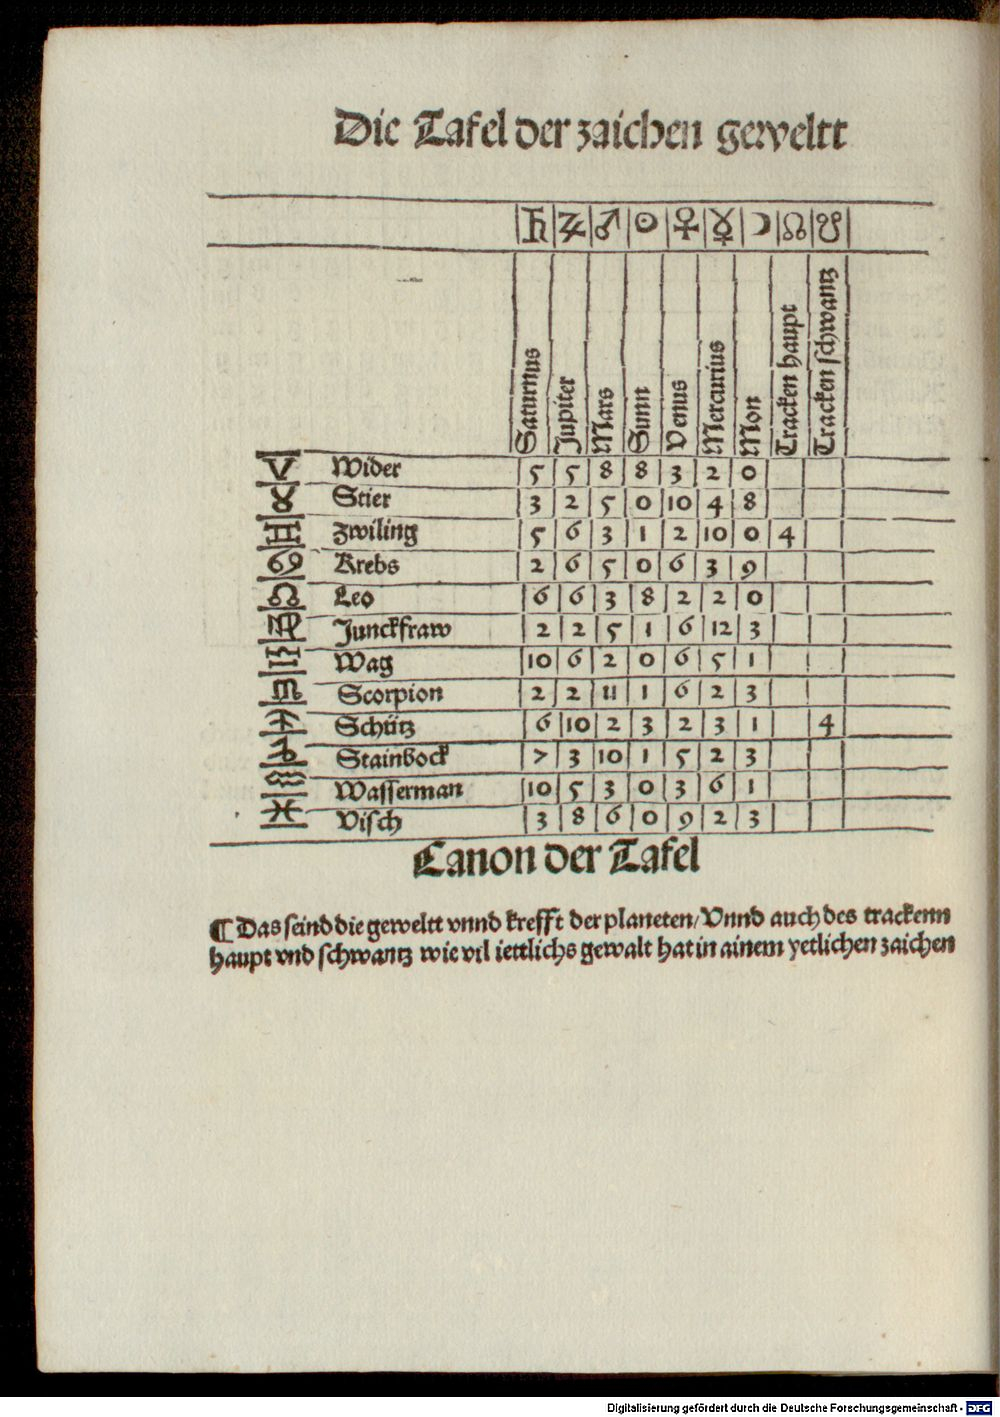 Die Tafel der zaichen geweltt
♄ ♃ ♂ ☉ ♀ ☿ ☽ ☊ ☋
Saturnus Jupiter Mars Sunn Venus Mercurius Mon Tracken haupt Tracken schwantz
♈ Wider 5 5 8 8 3 2 0
♉ Stier 3 2 5 0 10 4 8
♊ Zwiling 5 6 3 1 2 10 0 4
♋ Krebs 2 6 5 0 6 3 9
♌ Leo 6 6 3 8 2 2 0
♍ Junckfraw 2 2 5 1 6 12 3
♎ Wag 10 6 2 0 6 5 1
♏ Scorpion 2 2 11 1 6 2 3
♐ Schütz 6 10 2 3 2 3 1 4
♑ Stainbock 7 3 10 1 5 2 3
♒ Wasserman 10 5 3 0 3 6 1
♓ Visch 3 8 6 0 9 2 3
Canon der Tafel
¶ Das seind die geweltt vnnd krefft der planeten/ Vnnd auch des trackenn
haupt vnd schwantz wie vil iettlichs gewalt hat in ainem yetlichen zaichen
Digitalisierung gefördert durch die Deutsche Forschungsgemeinschaft - DFG